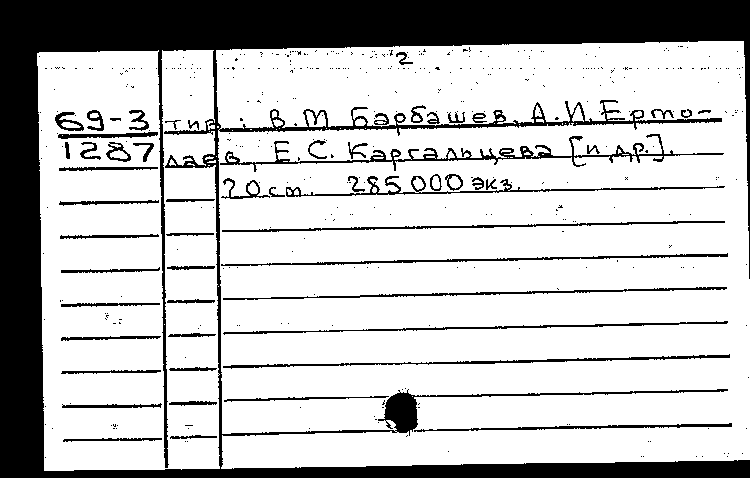 2
69-3 тив: В.М Барбашев, А.И. Ермо-
1287 лаев, Е.С. Каргальцева [и др.].
20 cm. 285 000 экз.